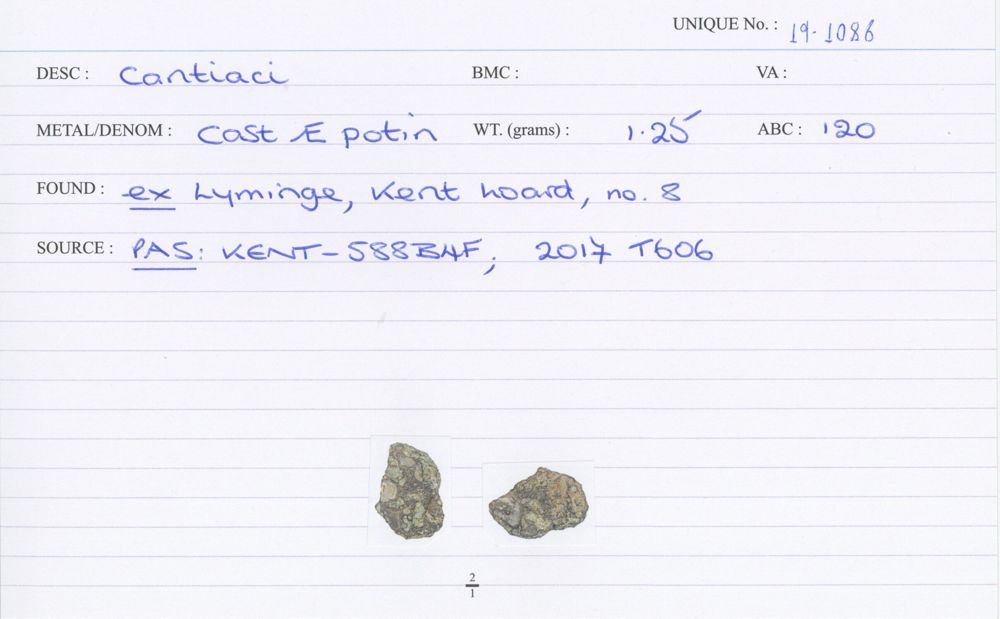 UNIQUE No. : 19-1086
DESC : Cantiaci BMC : VA :
METAL/DENOM : Cast Æ potin WT. (grams) : 1.25 ABC : 120
FOUND : ex Lyminge, Kent hoard, no. 8
SOURCE : PAS: KENT-588B4F; 2017 T606
2
1